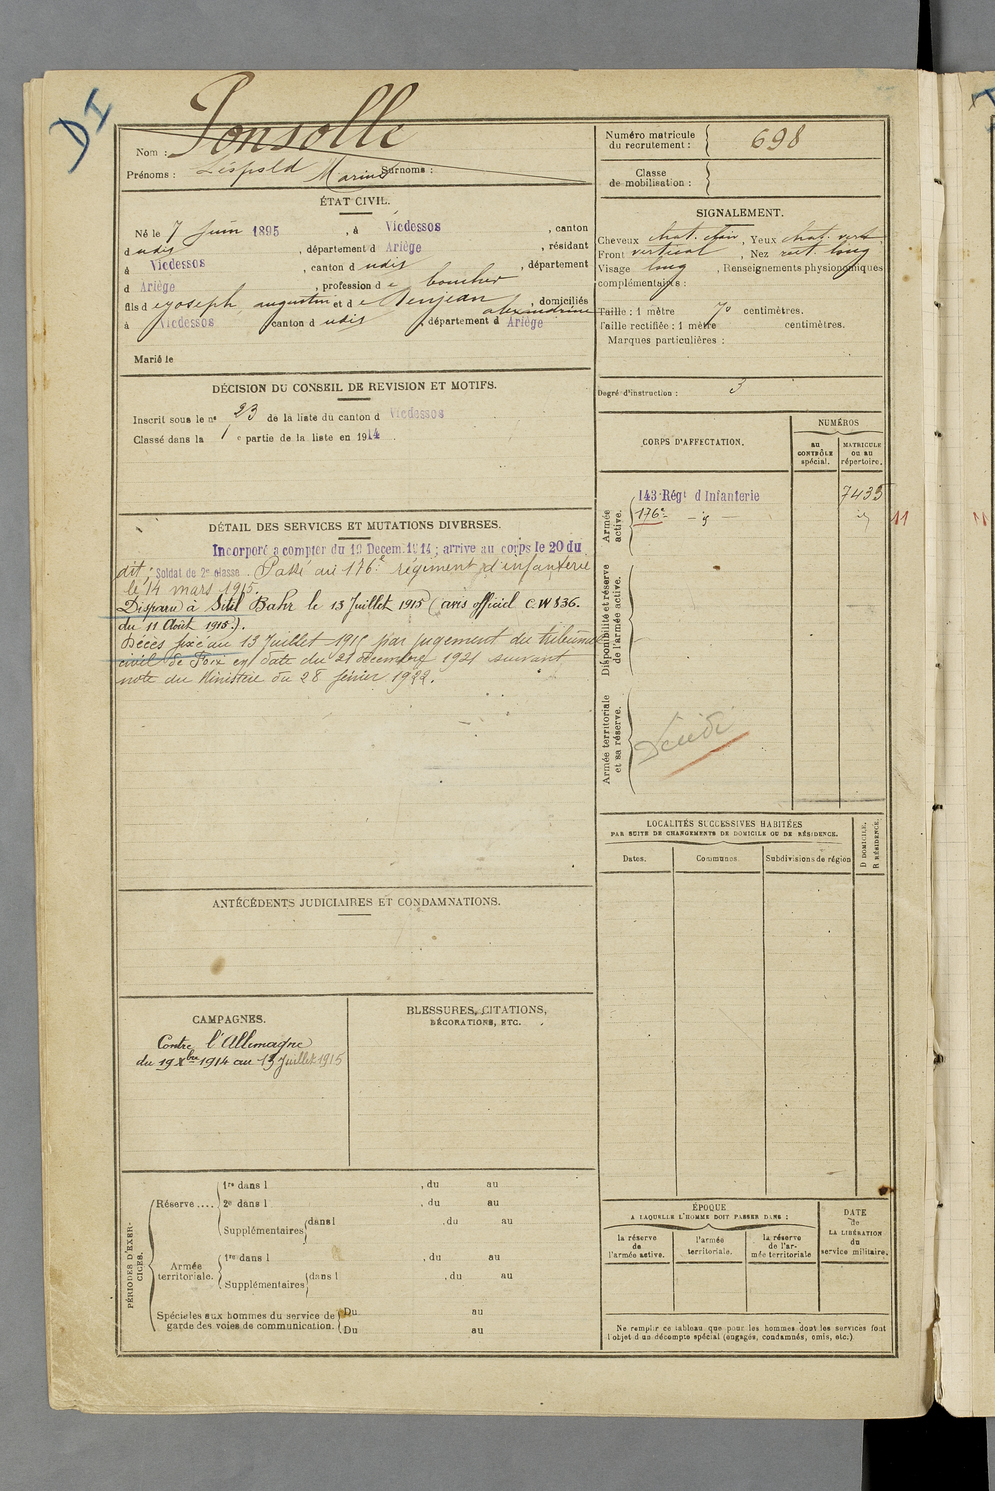 DI
Ponsolle
Nom :
Prénoms : Léopold Marius Surnoms :
Numéro matricule du recrutement : 698
Classe de mobilisation :
ÉTAT CIVIL.
Né le 7 Juin 1895, à Vicdessos, canton
d udis, département d Ariège, résidant
à Vicdessos, canton d udis, département
d Ariège, profession de boucher
fils de Joseph, augustin et de Denjean alexandrine, domiciliés
à Vicdessos canton d udis, département d Ariège
Marié le
SIGNALEMENT.
Cheveux chat. clair, Yeux chat. verts
Front vertical, Nez rect. long
Visage long, Renseignements physionomiques
complémentaires :
Taille : 1 mètre 70 centimètres.
Taille rectifiée : 1 mètre centimètres.
Marques particulières :
Degré d'instruction : 3
DÉCISION DU CONSEIL DE REVISION ET MOTIFS.
Inscrit sous le n° 23 de la liste du canton d Vicdessos
Classé dans la 1 e partie de la liste en 1914.
DÉTAIL DES SERVICES ET MUTATIONS DIVERSES.
Incorporé a compter du 19 Decem. 1914 ; arrive au corps le 20 du
dit ; Soldat de 2e classe. Passé au 176e régiment d'infanterie
le 14 mars 1915.
Disparu à Sitil Bahr le 13 Juillet 1915 (avis officiel C.W 836.
du 11 Août 1915.).
Décès fixé au 13 Juillet 1915 par jugement du tribunal
civil de Foix en date du 21 décembre 1921 suivant
note du Ministère du 28 février 1922.
CORPS D'AFFECTATION.
NUMÉROS
au CONTRÔLE spécial.
MATRICULE ou au répertoire.
Armée active.
143 Régt d Infanterie 7435
176e - id - id 11
Disponibilité et réserve de l'armée active.
Armée territoriale et sa réserve.
LOCALITÉS SUCCESSIVES HABITÉES
PAR SUITE DE CHANGEMENTS DE DOMICILE OU DE RÉSIDENCE.
Dates.
Communes.
Subdivisions de région
D DOMICILE.
R RÉSIDENCE.
ANTÉCÉDENTS JUDICIAIRES ET CONDAMNATIONS.
CAMPAGNES.
Contre l'Allemagne
du 19 Xbre 1914 au 13 Juillet 1915
BLESSURES, CITATIONS,
DÉCORATIONS, ETC.
PÉRIODES D'EXERCICES.
Réserve....
1re dans l , du au
2e dans l , du au
Supplémentaires dans l , du au
Armée territoriale.
1re dans l , du au
Supplémentaires dans l , du au
Spéciales aux hommes du service de garde des voies de communication.
Du au
Du au
ÉPOQUE
A LAQUELLE L'HOMME DOIT PASSER DANS :
la réserve de l'armée active.
l'armée territoriale.
la réserve de l'armée territoriale
DATE de LA LIBÉRATION du service militaire.
Ne remplir ce tableau que pour les hommes dont les services font
l'objet d'un décompte spécial (engagés, condamnés, omis, etc.)
11